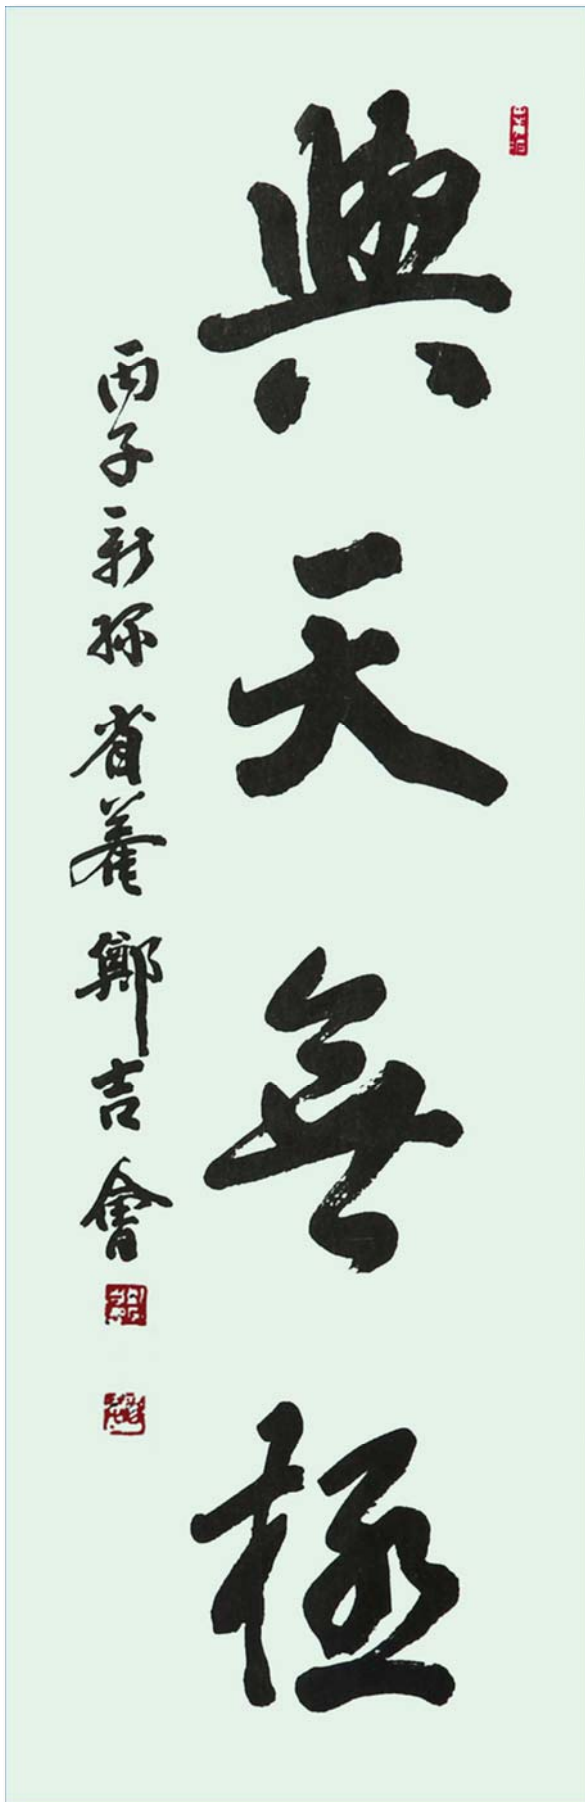 與天無極
丙子新 省菴 鄭吉會